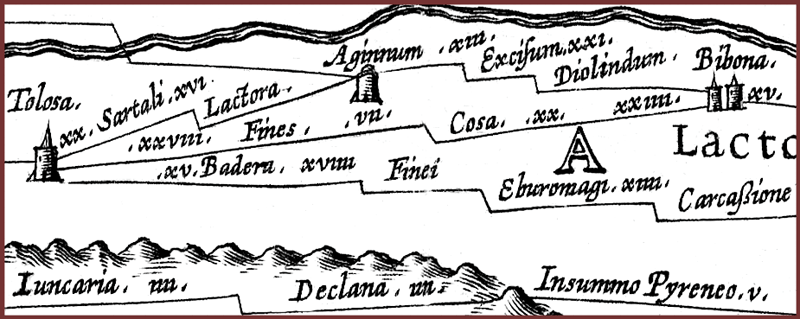 Aginnum . xiii. Excisum. xxi. Diolindum. Bibona.
Tolosa. xx. Sartali. xvi. Lactora. xv.
.xxviii. Fines . .vii. Cosa. .xx. xxiiii.
A Lacto
.xv. Badera. xviiii Finei Eburomagi. xiiii. Carcaßione
Iuncaria. iiii. Declana. iiii. Insummo Pyreneo. v.